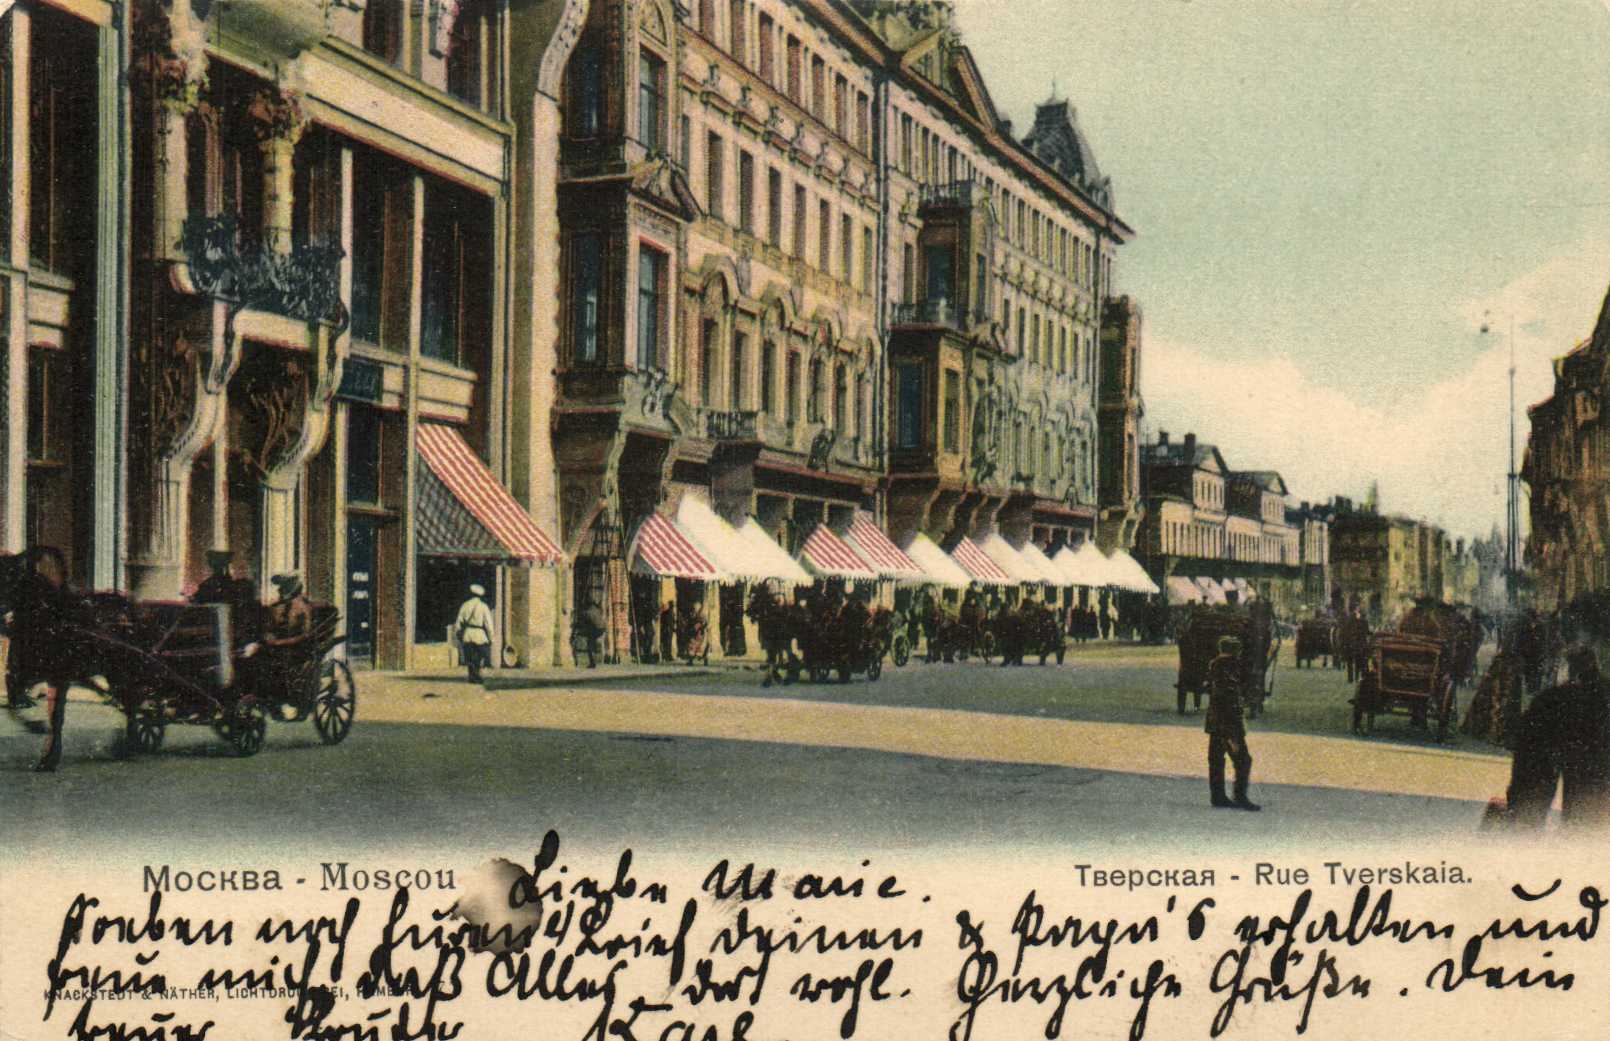 Москва - Moscou
Тверская - Rue Tverskaia.
Liebe Marie.
Soeben noch Euren Brief deinen & Papa's erhalten und
freue mich, daß Alles dort wohl. Herzliche Grüße. Dein
KNACKSTEDT & NÄTHER, LICHTDRUCKEREI, HAMBURG
treuer Bruder Karl.